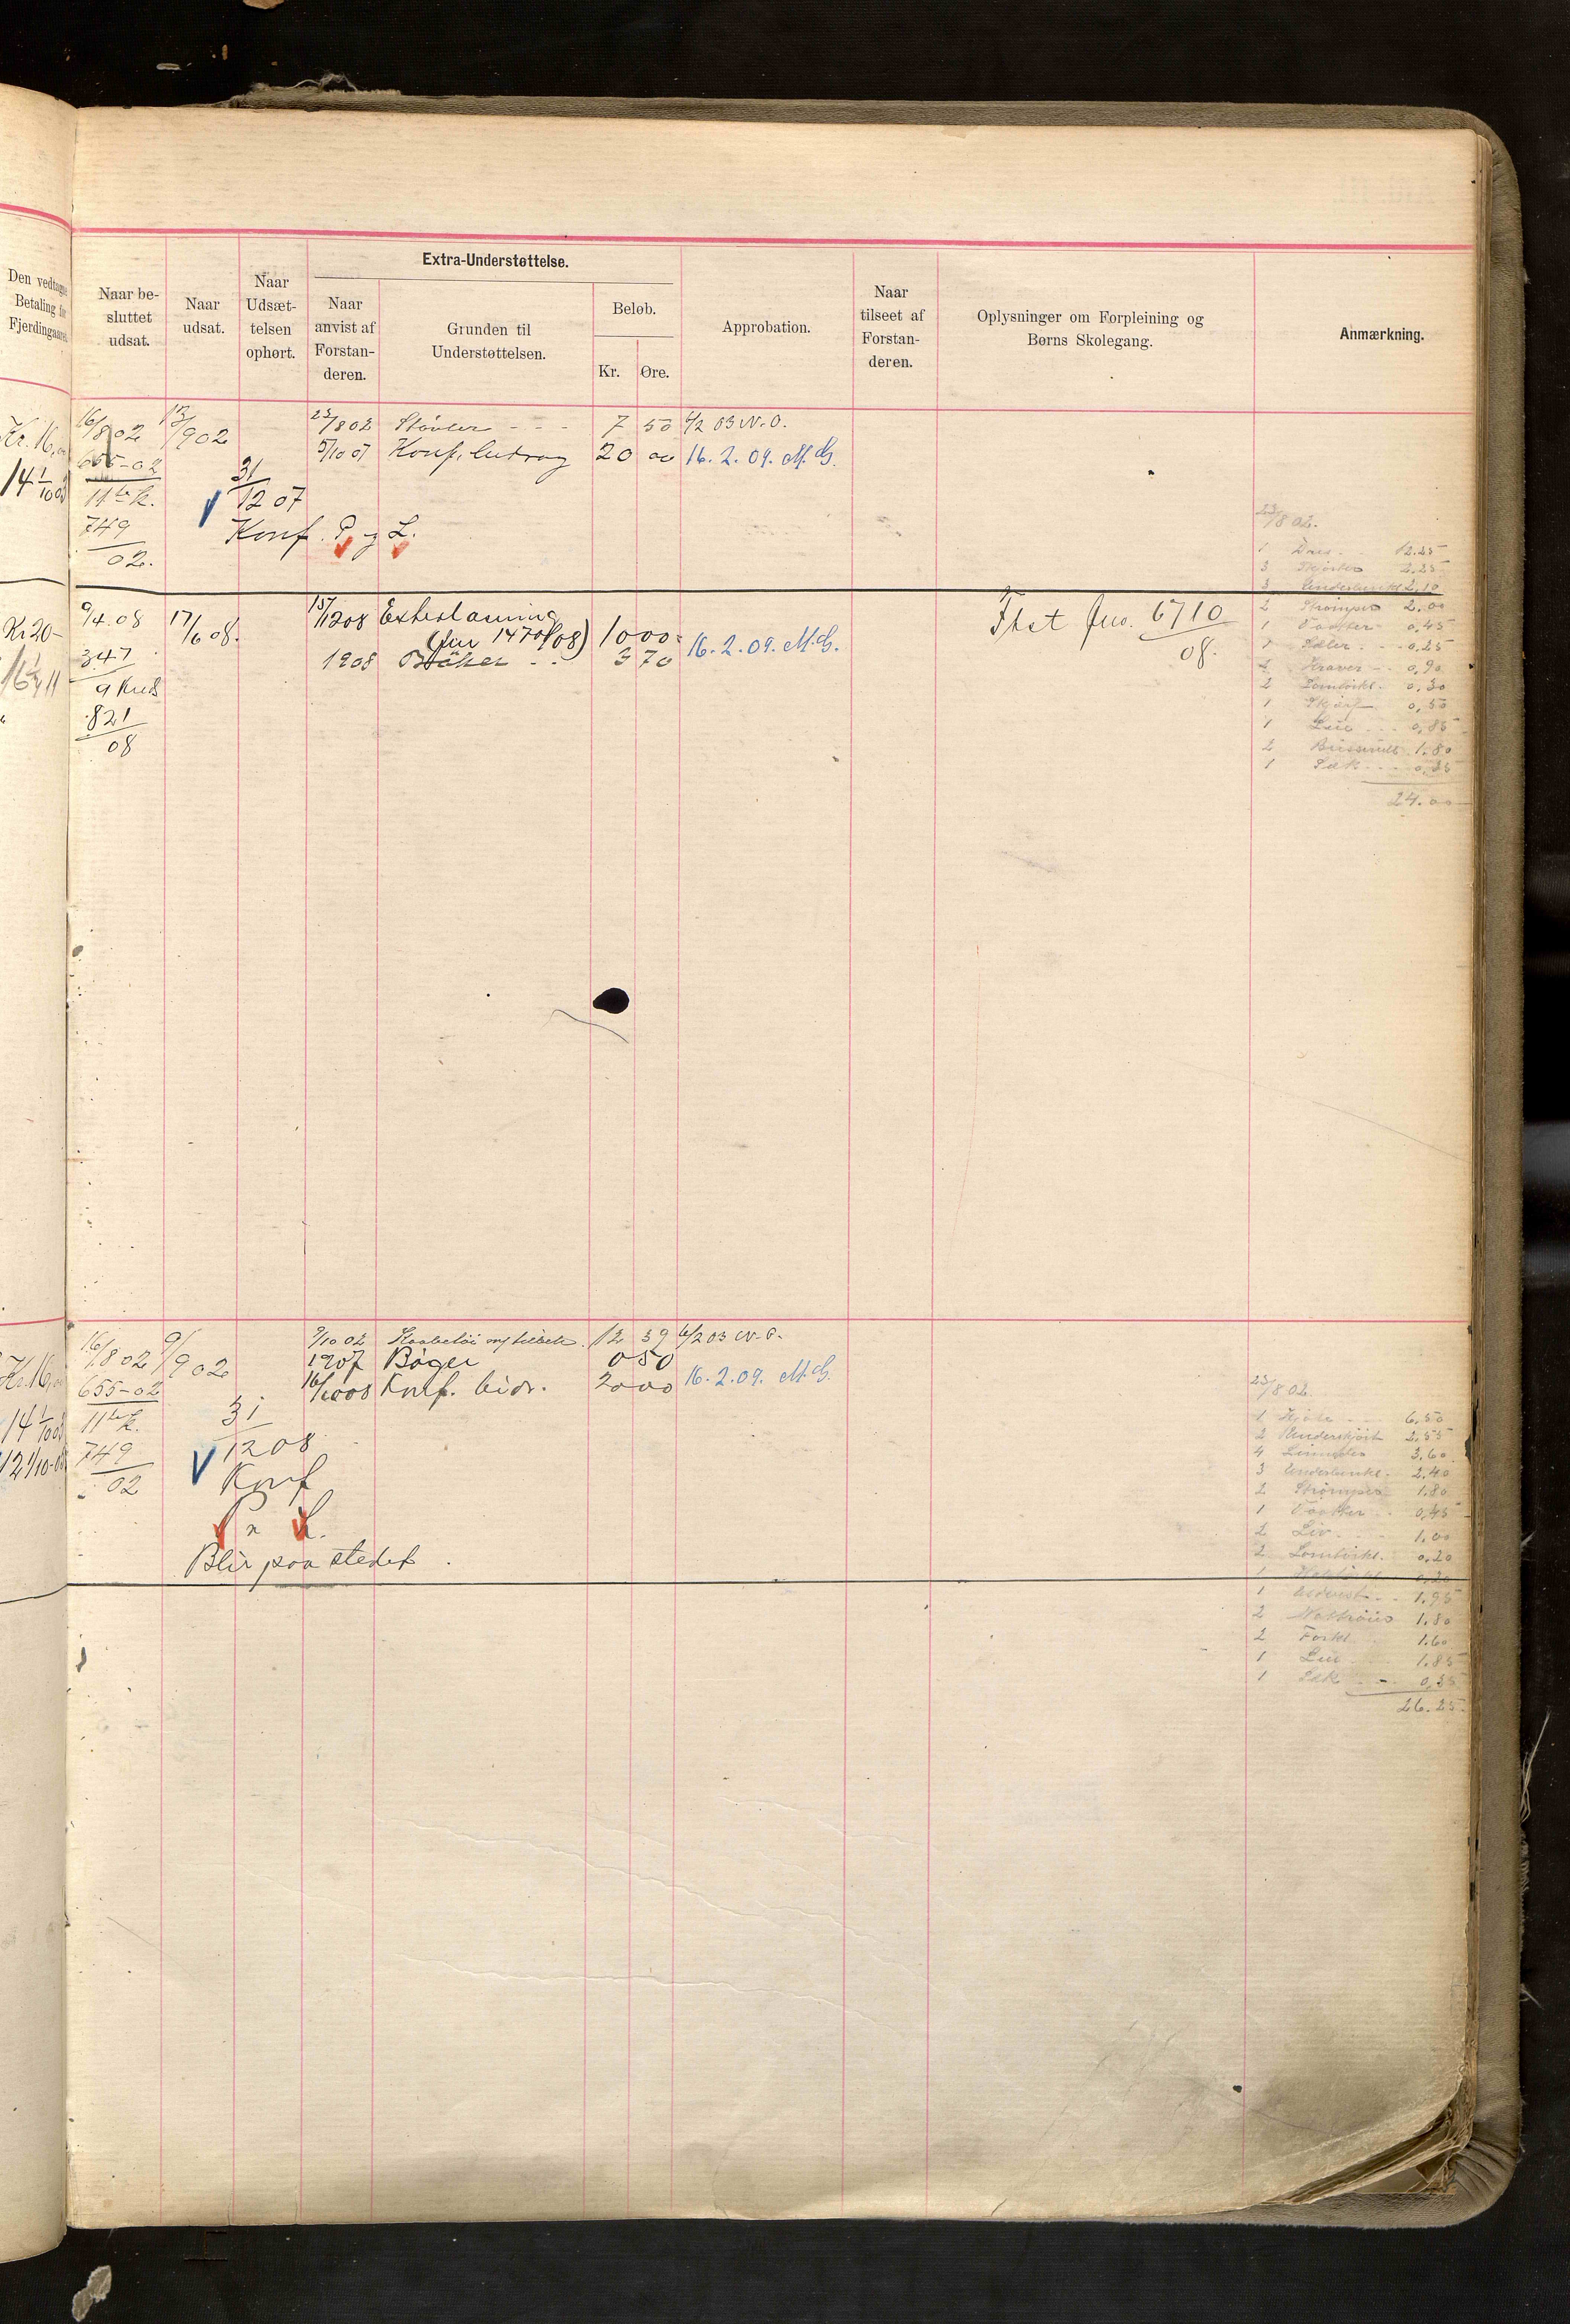 Den vedtagne
Betaling for
Fjerdingaaret
Naar be-
sluttet
udsat.
Naar
udsat.
Naar
Udsæt-
telsen
ophørt.
Extra-Understøttelse.
Naar
anvist af
Forstan-
deren.
Grunden til
Understøttelsen.
Beløb.
Kr.
Øre.
Approbation.
Naar
tilseet af
Forstan-
deren.
Oplysninger om Forpleining og
Børns Skolegang.
Anmærkning.
Kr. 16,00
16/8 02
13/9 02
23/8 02 Støvler - - - 7 50 6/2 03 N.O.
5/10 07 Konf. bidrag 20 00 16. 2. 09. M.G.
655-02
11te k.
749
02.
31
12 07
Konf. P. og L.
23/8 02.
1 Dres 12.25
3 Skjorter 2.25
3 Underbenkl 2.10
2 Strømper 2.00
1 Vaatter 0,45
0,25
Kraver 0,90
2 Lomtørkl. 0,30
1 Skjærf 0,50
1 0,85
2 1.80
1 Sæk 0,35
24.00
Kr 20-
9/4.08
17/6 08.
347
9 Kred
821
08
15/12 08
(Jur 1470/08) 10 00
1908 Bøker - - 3 70
16. 2. 09. M.G.
Jur. 6710
08.
Kr. 16,00
16/8 02
9/9 02
9/10 02 12 39 6/2 03 N.O.
1907 Bøger 0 50
16/10 08 Konf. bidr. 20 00 16. 2. 09. M.G.
655-02
11te k.
749
02
31
12 08
Konf
P. L.
Blir paa stedet.
23/8 02.
1 Kjole 6,50
2 Underskjørt 2,55
4 3,60
3 Underbenkl. 2,40
2 Strømper 1.80
1 Vaatter 0,45
2 Liv 1,00
2 Lomtørkl. 0,20
1 0,20
1 1.95
2 1.80
2 Forkl. 1.60
1 1.85
1 Sæk - - 0,35
26.25